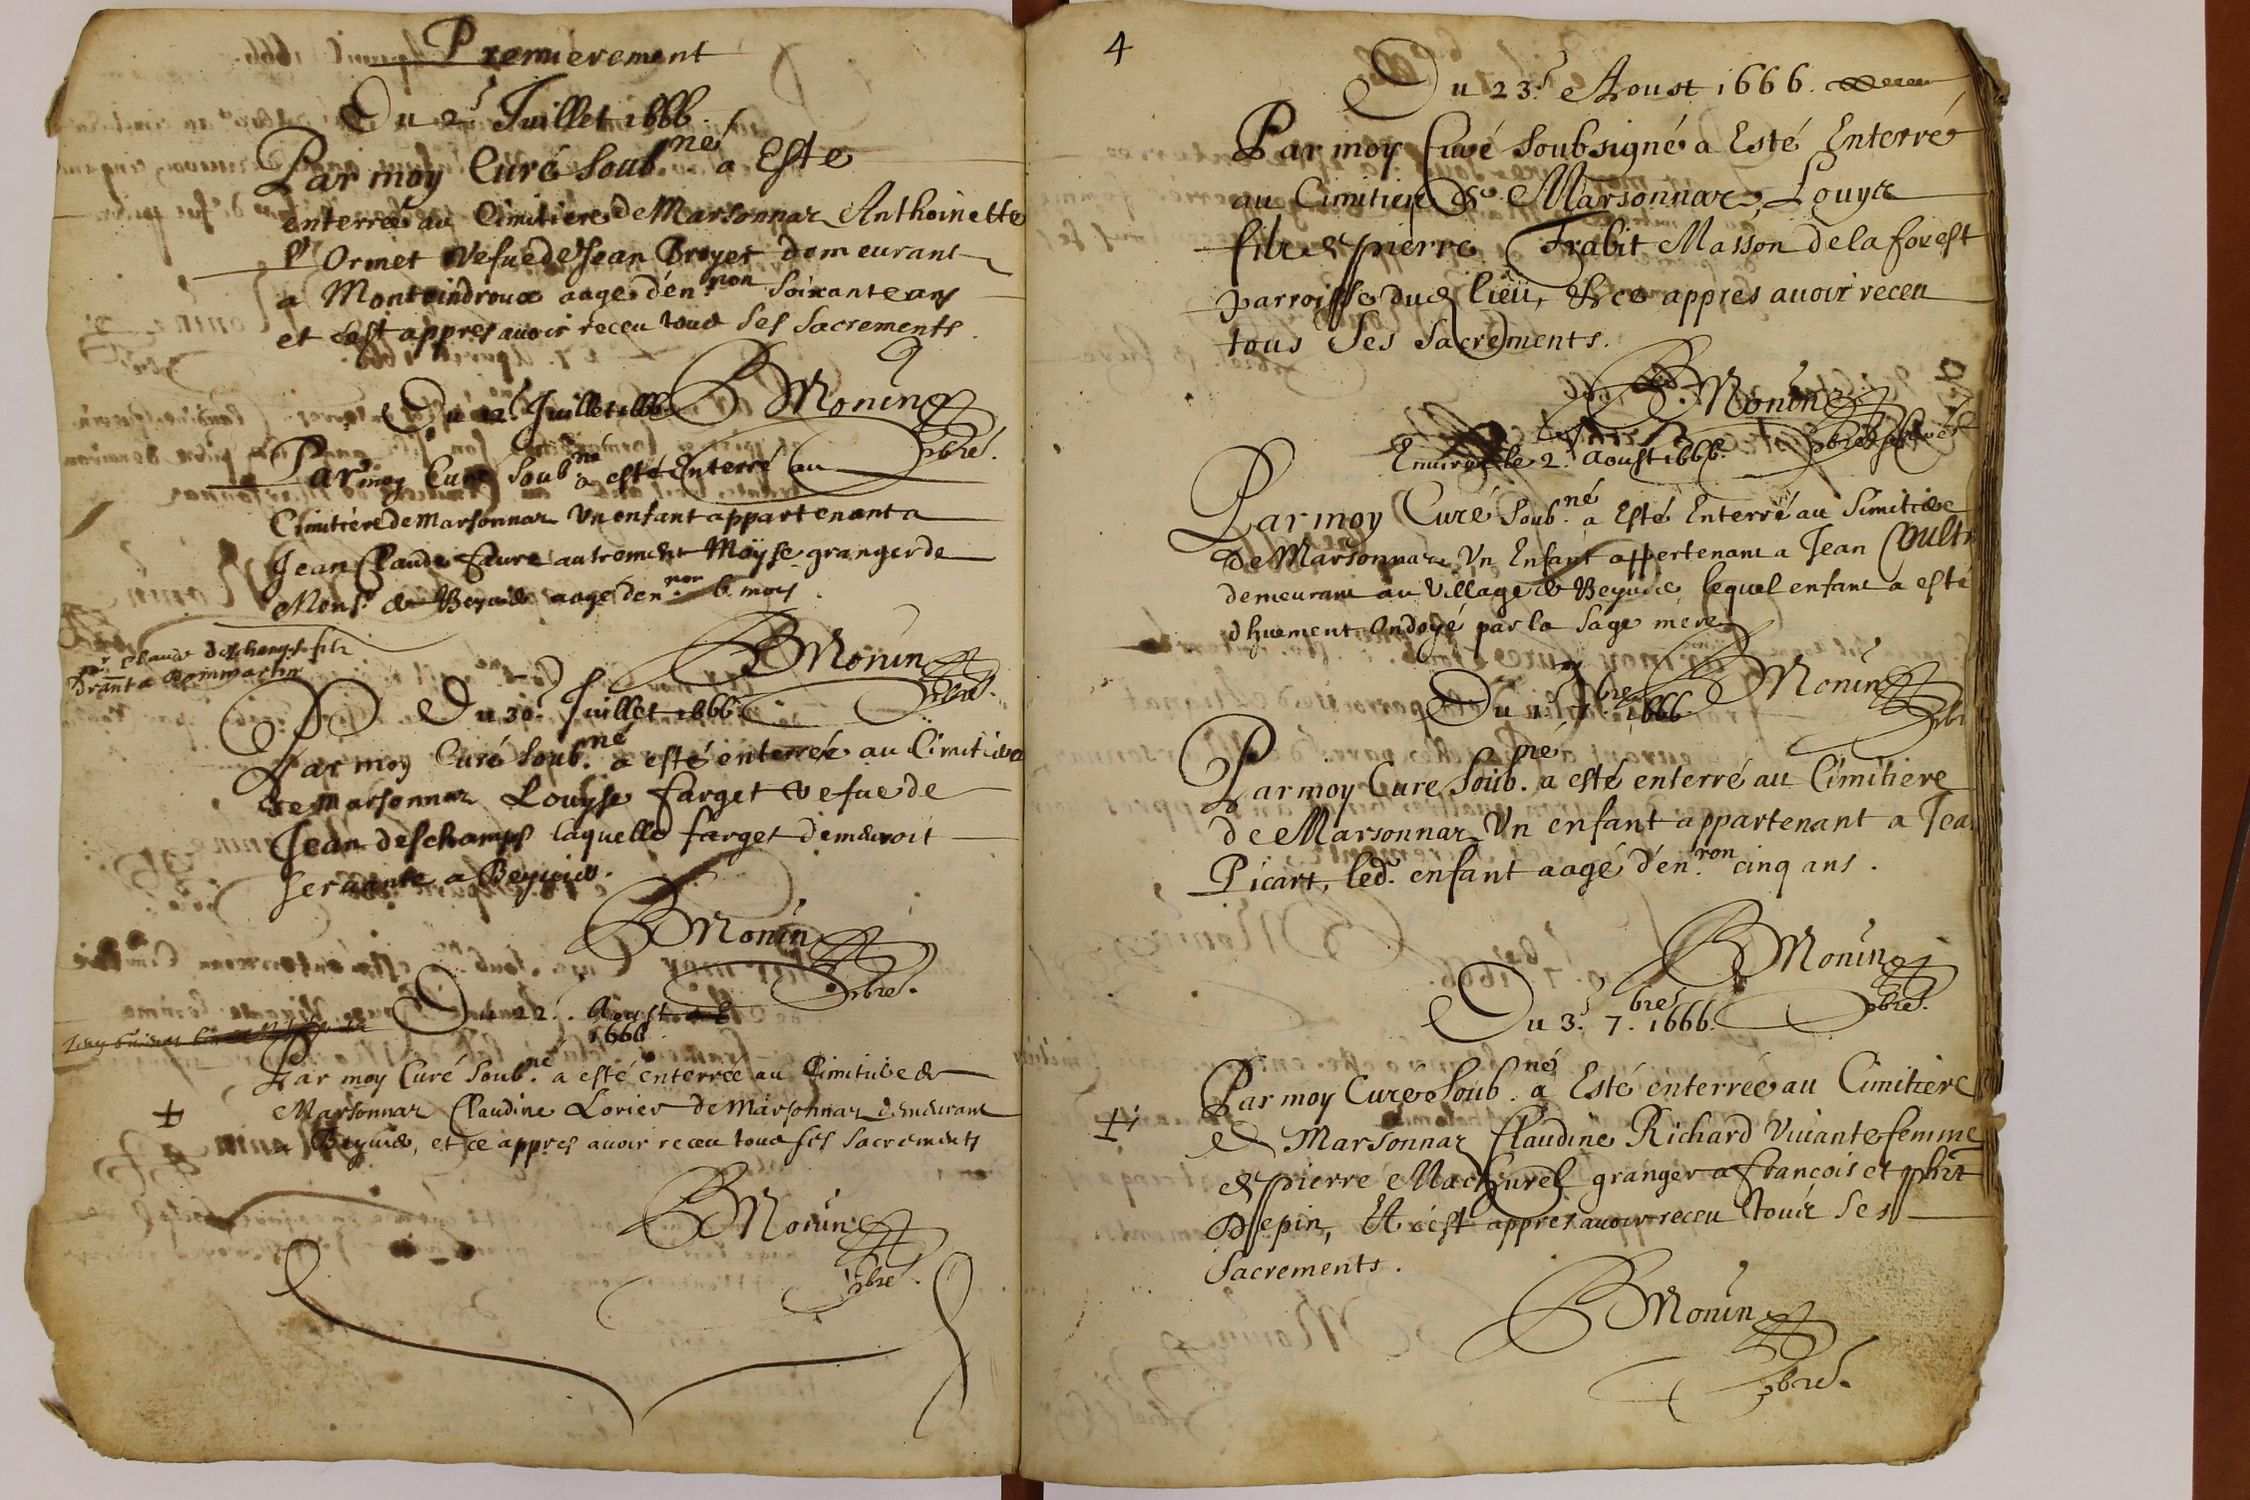 Premierement
Du 2.e Juillet 1666.
Par moy Curé soub.né a Este
enterrée au Cimitiere de Marsonnaz Anthoinette
l'Ormet vefue de Jean Broyer demeurant
a Montaindroux aage d'en.ron soixante ans
et c'est appres auoir receu tous ses sacrements.
BMonin
pbre.
Du 12.e Juillet 1666.
Par moy Curé soub.né a esté Enterré au
Cimitiere de Marsonnaz Vn enfant appartenant a
Jean Claude Faure autrement Moÿse granger de
Mons.r de Beyuiés aage d'en.ron 6 mois.
BMonin
pbre.
Claude deschamps fils
a Dommartin
Du 30.e Juillet 1666.
Par moy Curé soub.né a esté enterrée au Cimitiere
de Marsonnaz Louyse farget vefue de
Jean deschamps laquelle farget demeuroit
seruante a Beyuiés.
BMonin
pbre.
Du 22. Aoust
1666.
Par moy Curé soub.né a esté enterrée au Cimitiere de
Marsonnaz Claudine Lorier de Marsonnaz demeurant
a Beyuiés, et ce appres auoir receu tous ses sacrements
BMonin
pbre.
4
Du 23.e Aoust 1666.
Par moy Curé soubsigné a Esté Enterré
au Cimitiere de Marsonnaz, Louys
fils de pierre Trabit Masson de la forest
parroisse dud. lieü, Et ce appres auoir receu
tous ses sacrements.
B.Monin
pbre
Enuiron le 2.e Aoust 1666.
Par moy Curé soub.né a Esté Enterré au Cimitiere
de Marsonnaz Vn Enfant appertenant a Jean
demeurant au Village de Beyuiés lequel enfant a esté
dhuement Ondoyé par la sage mere
BMonin
Du 1.er 7.bre 1666
Par moy Curé soub.né a esté enterré au Cimitiere
de Marsonnaz Vn enfant appartenant a Jea
Picart, led. enfant aagé d'en.ron cinq ans.
BMonin
pbre.
Du 3.e 7.bre 1666.
Par moy Curé soub.né a Esté enterrée au Cimitiere
de Marsonnaz Claudine Richard Viuante femme
de pierre Machurel granger a François et
Despin, Et c'est appres auoir receu tous ses
sacrements.
BMonin
pbre.